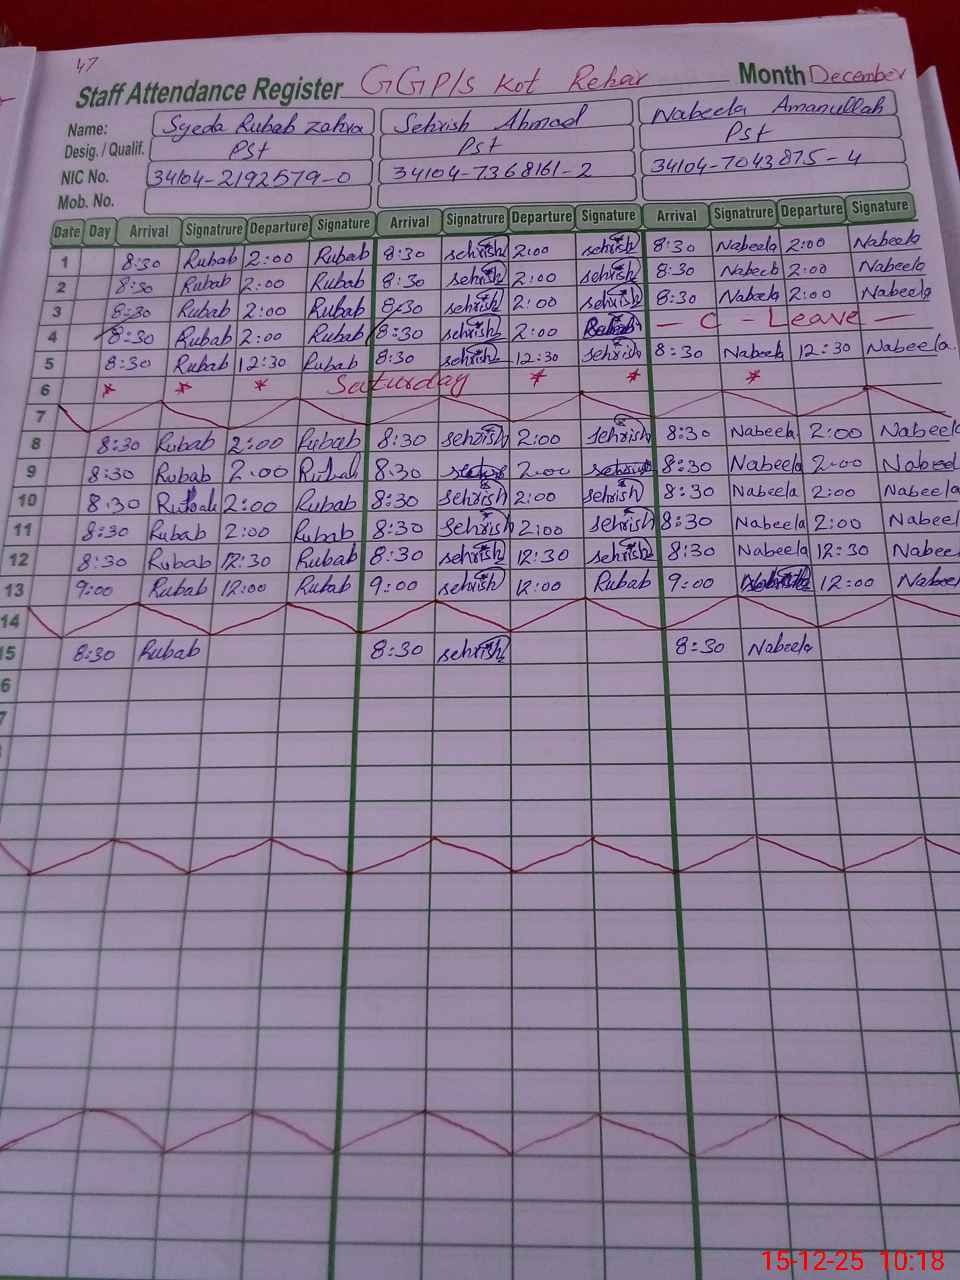 47
Staff Attendance Register GGP/S Kot Rehar Month December
Name: Syeda Rubab Zahra Sehrish Ahmad Nabeela Amanullah
Desig. / Qualif. Pst Pst Pst
NIC No. 34104-2192579-0 34104-7368161-2 34104-7043875-4
Mob. No.
Date Day Arrival Signatrure Departure Signature Arrival Signatrure Departure Signature Arrival Signatrure Departure Signature
1 8:30 Rubab 2:00 Rubab 8:30 sehrish 2:00 sehrish 8:30 Nabeela 2:00 Nabeela
2 8:30 Rubab 2:00 Rubab 8:30 sehrish 2:00 sehrish 8:30 Nabeela 2:00 Nabeela
3 8:30 Rubab 2:00 Rubab 8:30 sehrish 2:00 sehrish 8:30 Nabeela 2:00 Nabeela
4 8:30 Rubab 2:00 Rubab 8:30 sehrish 2:00 — C - Leave —
5 8:30 Rubab 12:30 Rubab 8:30 sehrish 12:30 sehrish 8:30 Nabeela 12:30 Nabeela
6 * * * Saturday * * *
7
8 8:30 Rubab 2:00 Rubab 8:30 sehrish 2:00 Sehrish 8:30 Nabeela 2:00 Nabeela
9 8:30 Rubab 2:00 Rubab 8:30 2:00 8:30 Nabeela 2:00 Nabeel
10 8:30 Rubab 2:00 Rubab 8:30 sehrish 2:00 sehrish 8:30 Nabeela 2:00 Nabeel
11 8:30 Rubab 2:00 Rubab 8:30 Sehrish 2:00 Sehrish 8:30 Nabeela 2:00 Nabeel
12 8:30 Rubab 12:30 Rubab 8:30 sehrish 12:30 sehrish 8:30 Nabeela 12:30 Nabee
13 9:00 Rubab 12:00 Rubab 9:00 sehrish 12:00 Rubab 9:00 12:00 Nabee
14
15 8:30 Rubab 8:30 sehrish 8:30 Nabeela
6
7
15-12-25 10:18